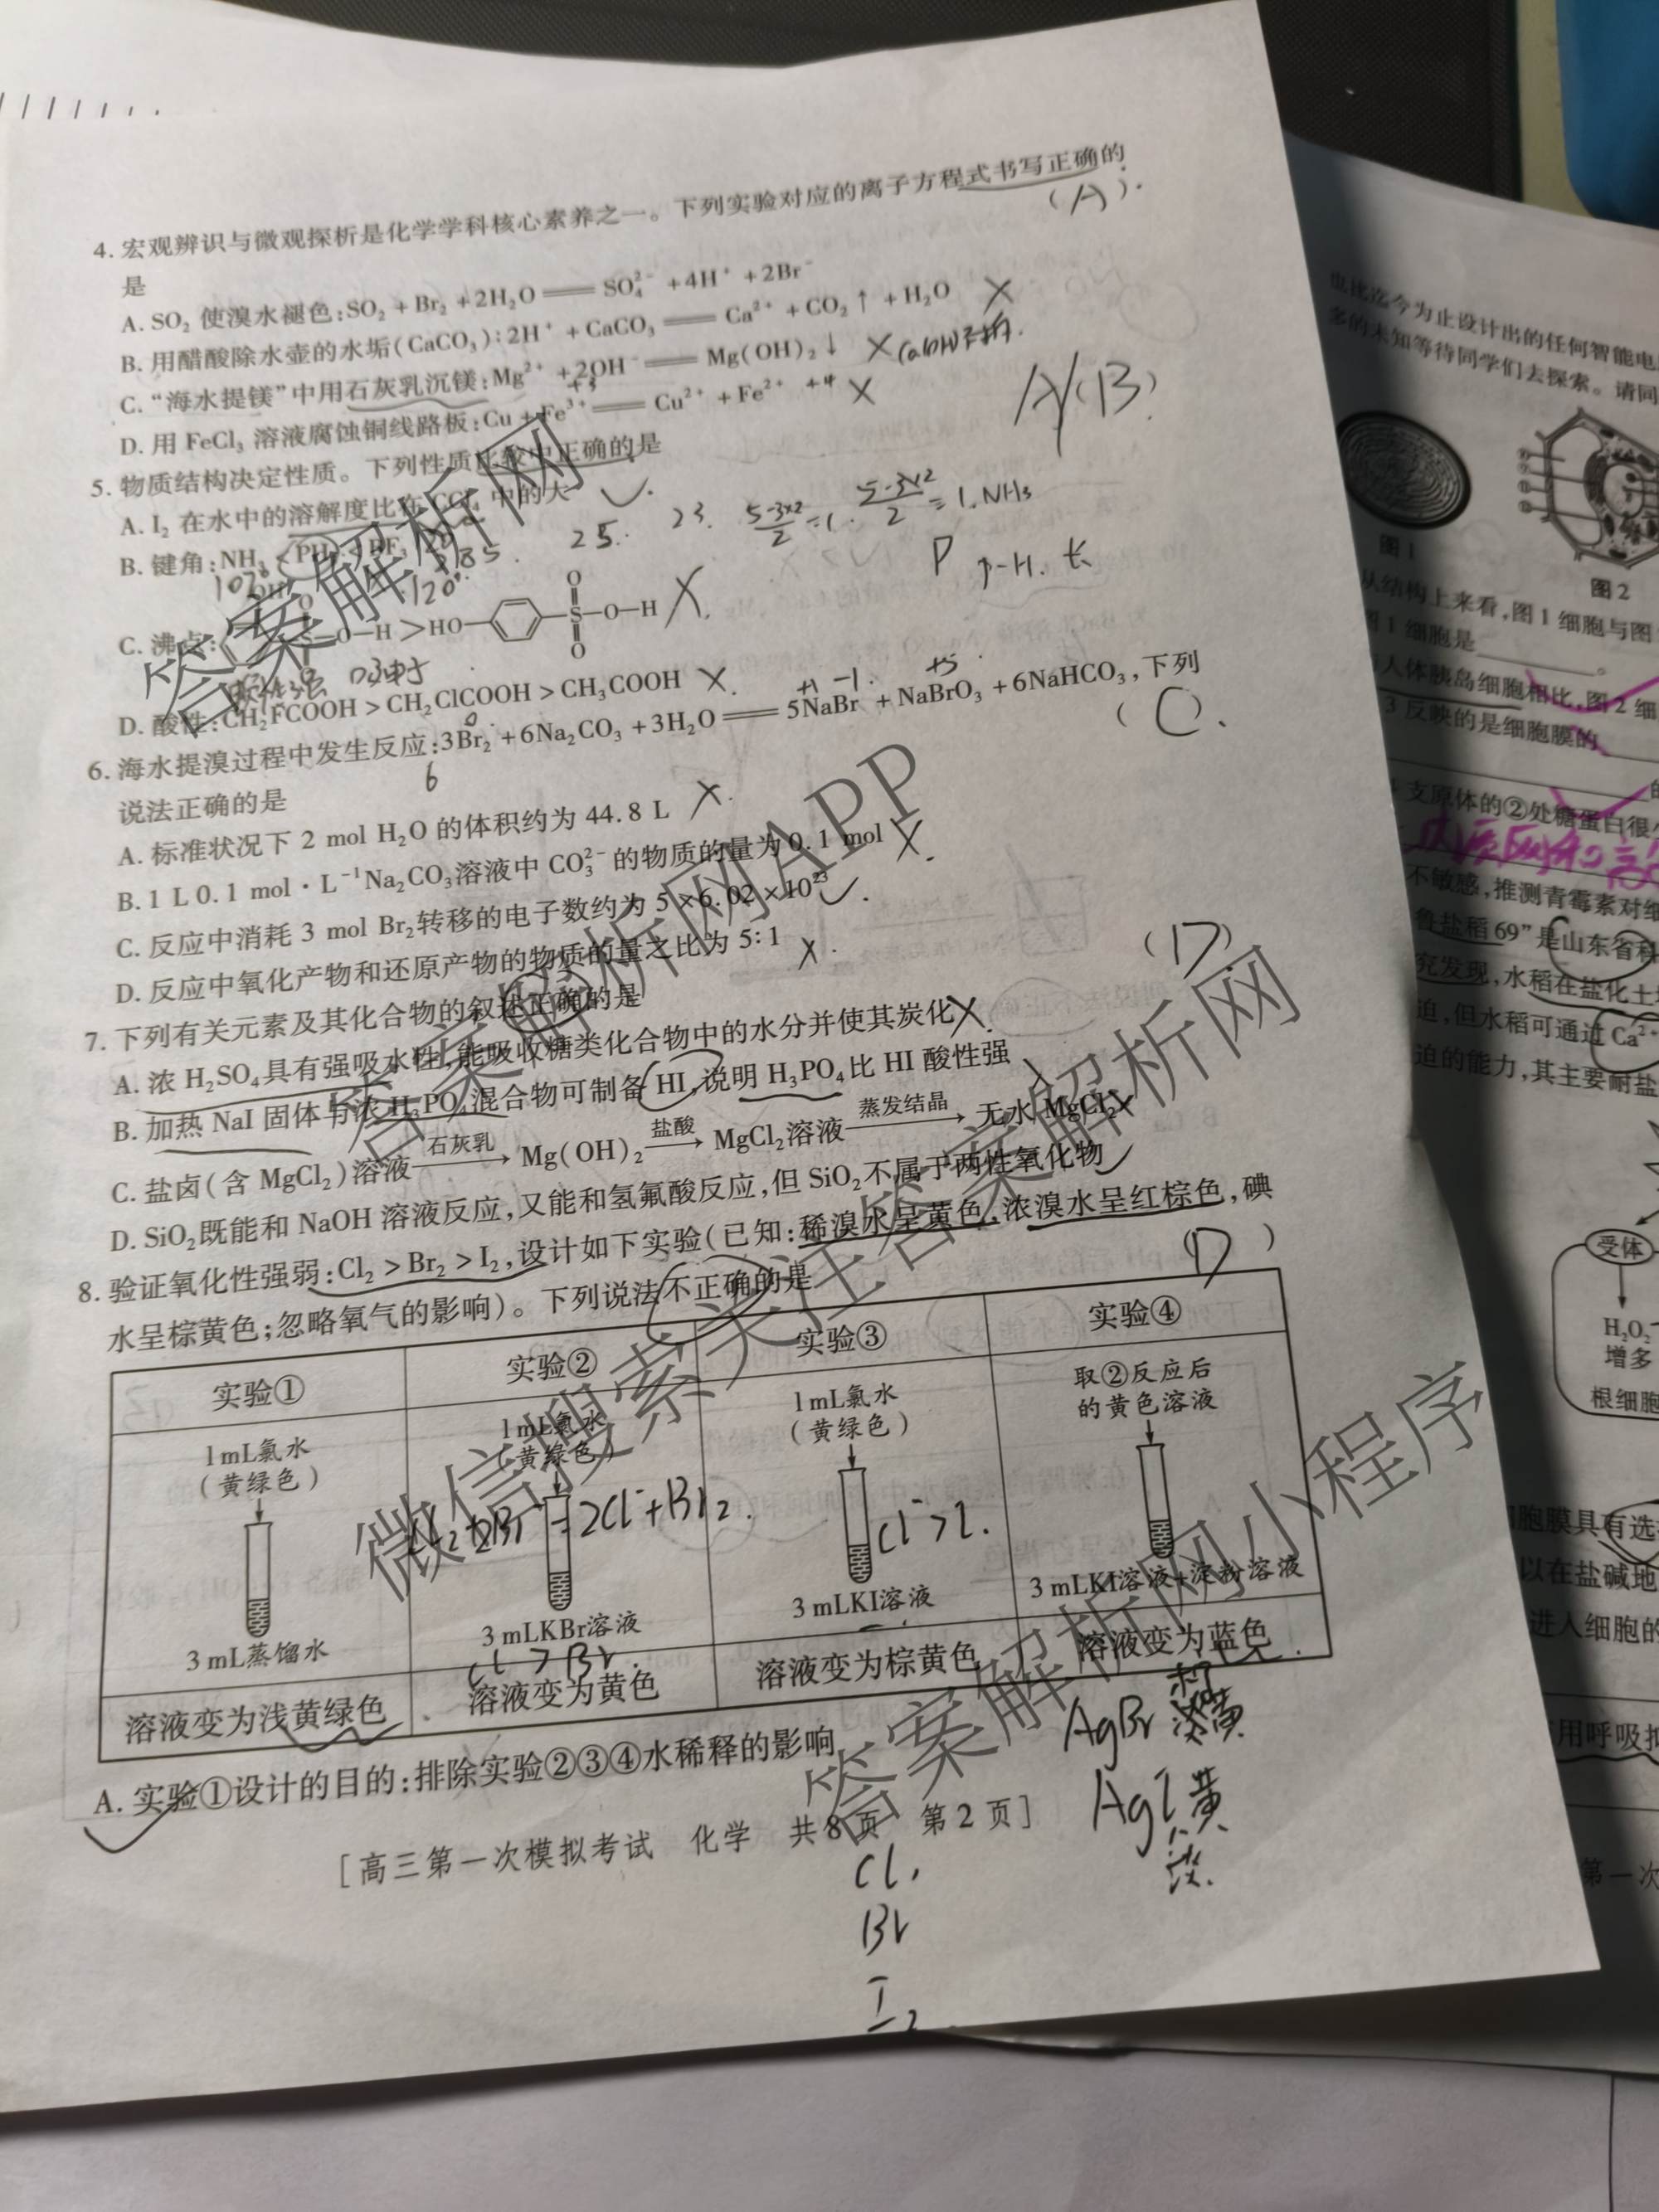 4. 宏观辨识与微观探析是化学学科核心素养之一。下列实验对应的离子方程式书写正确的
是
(A).
A. SO₂ 使溴水褪色:SO₂ + Br₂ + 2H₂O ══ SO₄²⁻ + 4H⁺ + 2Br⁻
B. 用醋酸除水壶的水垢(CaCO₃):2H⁺ + CaCO₃ ══ Ca²⁺ + CO₂↑ + H₂O ×
C. “海水提镁”中用石灰乳沉镁:Mg²⁺ + 2OH⁻ ══ Mg(OH)₂↓ ×
D. 用 FeCl₃ 溶液腐蚀铜线路板:Cu + Fe³⁺ ══ Cu²⁺ + Fe²⁺ ×
+3 +4
5. 物质结构决定性质。下列性质比较中正确的是
A (B)
A. I₂ 在水中的溶解度比在 CCl₄ 中的大
25. 23. (5-3×2)/2 = 1. (5-3×2)/2 = 1. NH₃
B. 键角:NH₃ < PH₃ < BF₃
107° 120°
P P-H. 长
C. 沸点: S—O—H > HO— —S—O—H ×
D. 酸性:CH₂FCOOH > CH₂ClCOOH > CH₃COOH ×
6. 海水提溴过程中发生反应:3Br₂ + 6Na₂CO₃ + 3H₂O ══ 5NaBr + NaBrO₃ + 6NaHCO₃,下列
0 +1 -1 +5
6
说法正确的是
(C).
A. 标准状况下 2 mol H₂O 的体积约为 44.8 L ×
B. 1 L 0.1 mol·L⁻¹Na₂CO₃溶液中 CO₃²⁻ 的物质的量为 0.1 mol ×
C. 反应中消耗 3 mol Br₂转移的电子数约为 5×6.02×10²³ ✓
D. 反应中氧化产物和还原产物的物质的量之比为 5:1 ×
7. 下列有关元素及其化合物的叙述正确的是
(D)
A. 浓 H₂SO₄具有强吸水性,能吸收糖类化合物中的水分并使其炭化 ×
B. 加热 NaI 固体与浓 H₃PO₄混合物可制备 HI,说明 H₃PO₄比 HI 酸性强
C. 盐卤(含 MgCl₂)溶液 —石灰乳→ Mg(OH)₂ —盐酸→ MgCl₂溶液 —蒸发结晶→ 无水 MgCl₂ ×
D. SiO₂既能和 NaOH 溶液反应,又能和氢氟酸反应,但 SiO₂不属于两性氧化物 ✓
8. 验证氧化性强弱:Cl₂ > Br₂ > I₂,设计如下实验(已知:稀溴水呈黄色,浓溴水呈红棕色,碘
水呈棕黄色;忽略氧气的影响)。下列说法不正确的是
(D)
实验① 实验② 实验③ 实验④
1 mL氯水 (黄绿色) 1 mL氯水 (黄绿色) 1 mL氯水 (黄绿色) 取②反应后的黄色溶液
Cl₂+2Br⁻=2Cl⁻+Br₂.
Cl > I.
3 mL蒸馏水 3 mLKBr溶液 3 mLKI溶液 3 mLKI溶液+淀粉溶液
Cl > Br.
溶液变为浅黄绿色 溶液变为黄色 溶液变为棕黄色 溶液变为蓝色
AgBr 浅黄
AgI 黄
A. 实验①设计的目的:排除实验②③④水稀释的影响
[高三第一次模拟考试 化学 共8页 第2页]
Cl,
Br
I₂
答案解析网
答案解析网APP
微信搜索关注答案解析网
答案解析网小程序
也比迄今为止设计出的任何智能电
多的未知等待同学们去探索。请同
图1
图2
从结构上来看,图1细胞与图
图1细胞是
。
人体胰岛细胞相比,图2细
3反映的是细胞膜的
支原体的②处糖蛋白很
不敏感,推测青霉素对细
鲁盐稻69”是山东省科
究发现,水稻在盐化土
迫,但水稻可通过Ca²⁺
迫的能力,其主要耐盐
受体
H₂O₂
增多
根细胞
胞膜具有选
以在盐碱地
进入细胞的
用呼吸抑
第一次